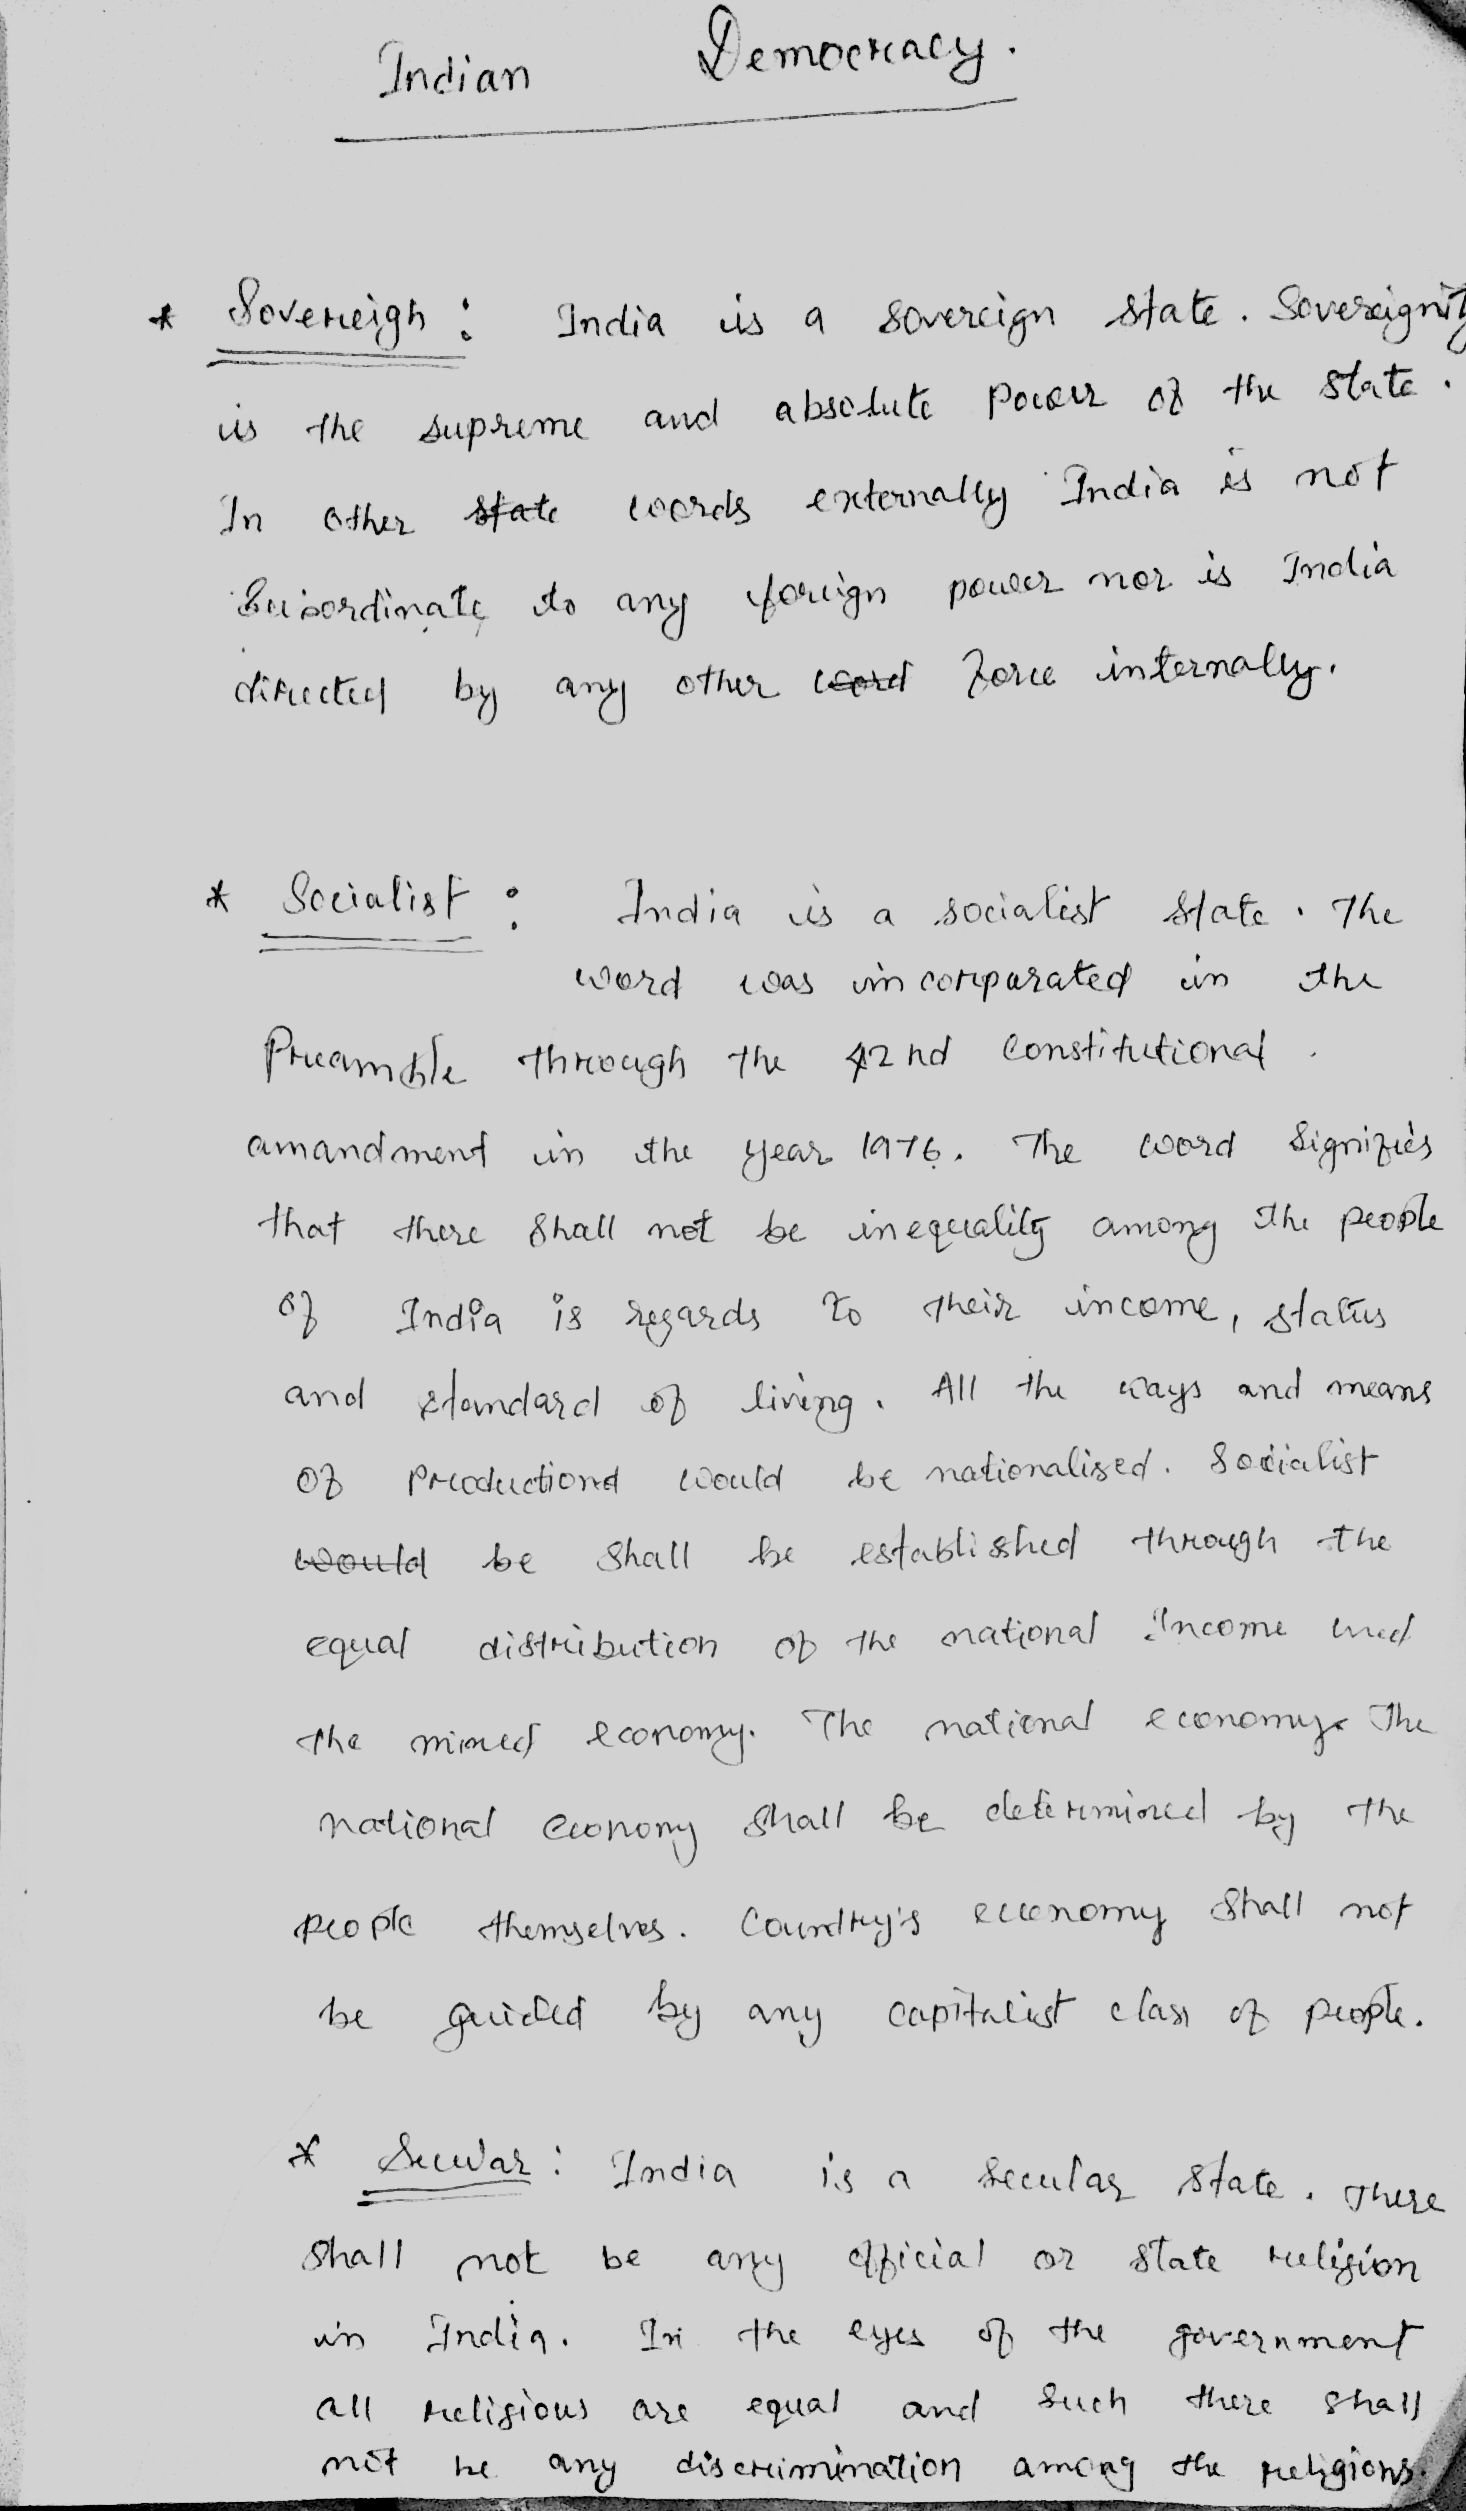 Indian Democracy.
* Sovereigh : India is a sovereign state. Sovereignity
is the supreme and absolute power of the state.
In other state words externally India is not
Subordinate to any foreign power nor is India
directed by any other word force internally.
* Socialist : India is a socialist state. The
word was incorparated in the
Preamble through the 42nd constitutional
amandment in the year 1976. The word signifies
that there shall not be inequality among the people
of India is regards to their income, status
and standard of living. All the ways and means
of productiond would be nationalised. Socialist
would be shall be established through the
equal distribution of the national income
the mixed economy. The national economy. The
national economy shall be determined by the
people themselves. Country's economy shall not
be guided by any capitalist class of people.
* Secular : India is a secular state. There
shall not be any official or state religion
in India. In the eyes of the government
all religious are equal and such there shall
not be any discrimination among the religions.